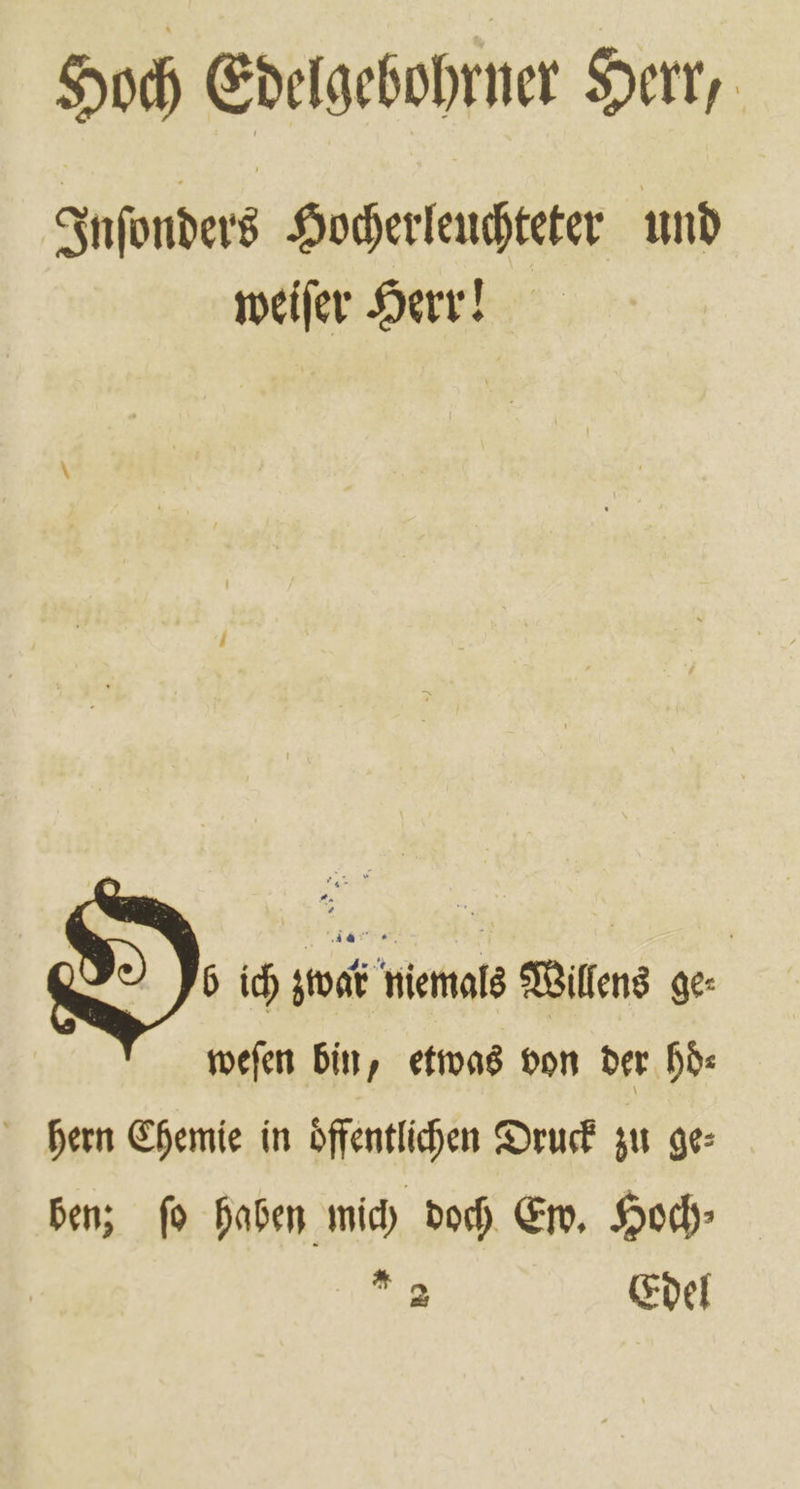 Hoch Edelgebohrner Herr,
Inſonders Hocherleuchteter und
weiſer Herr!
Ob ich zwar niemals Willens ge-
weſen bin, etwas von der hö-
hern Chemie in öffentlichen Druck zu ge-
ben; ſo haben mich doch Ew. Hoch-
* 2 Edel